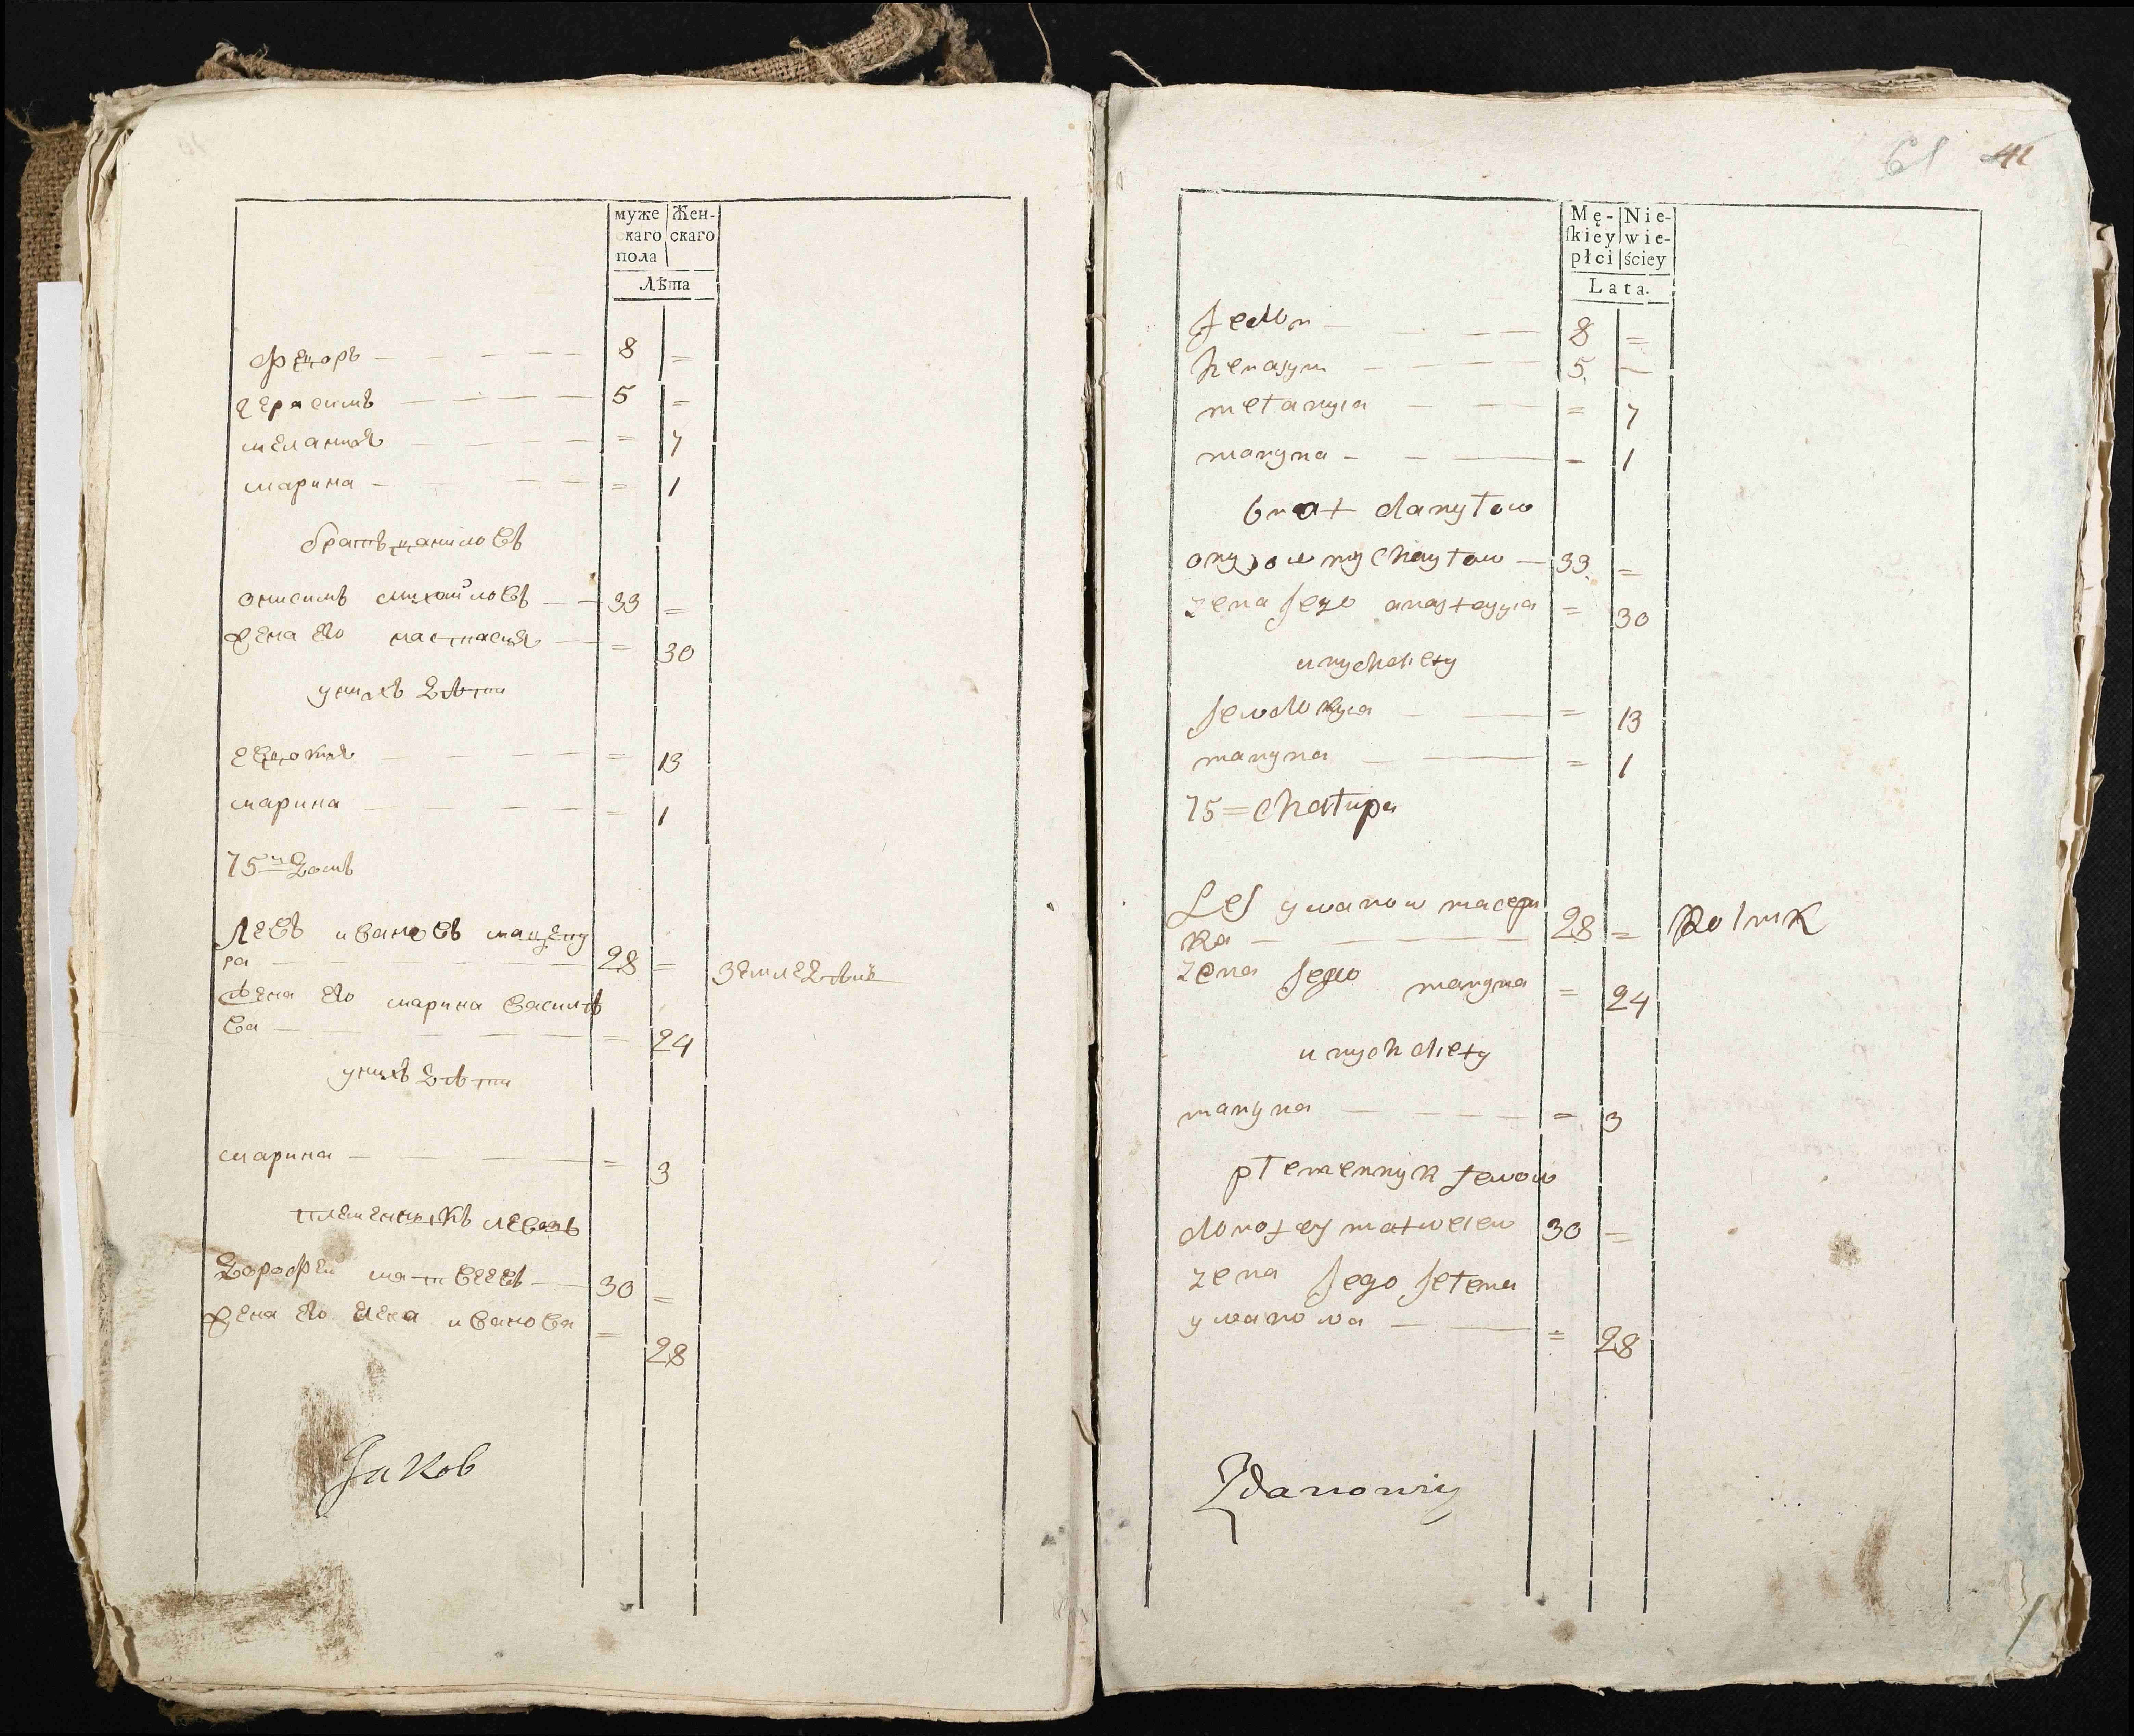 муже
скаго
пола
Жен-
скаго
Лѣта
Федоръ — — — — 8 =
герасимъ — — — — 5 =
мелания — — — — = 7
марина — — — = 1
братъ даниловъ
онисимъ михайловъ — — 33 =
жена его настасия — = 30
у нихъ дѣти
евдокия — — — — = 13
марина — — — — = 1
75й домъ
Левъ ивановъ
ра — — — — 28 = земледѣлецъ
жена его марина василѣ
ва — — — = 24
у нихъ дѣти
марина — — — = 3
племенникъ левовъ
дорофей матвеевъ — 30 =
жена его елена иванова = 28
Jakob
61 41
Mę-
skiey
płci
Nie-
wie-
ściey
Lata.
fedor — — — — 8 =
herasym — — — 5 —
mełanyia — — — = 7
maryna — — — = 1
brat danyłow
onysow mychayłow — 33 =
zena Jego anastasyia = 30
u nych diety
Jewdokyia — — = 13
maryna — — = 1
75 = chałupa
Lef ywanow macepu
Ra — — — 28 = Rolnik
zena Jego maryna = 24
u nych diety
maryna — — — = 3
płemennyk Lewow
dorofey matweiew 30 =
zena Jego Jełena
ywanowa — — = 28
Zdanowicz